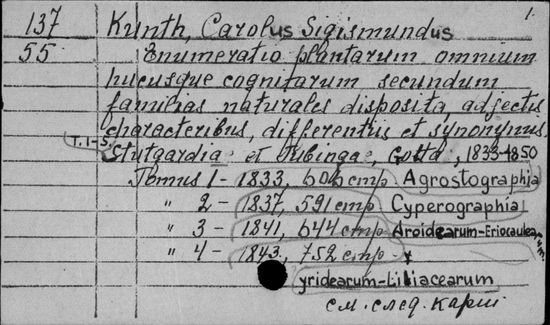 1.
137 Kunth, Carolus Sigismundus
55 Enumeratio plantarum omnium
hucusque cognitarum secundum
familias naturales disposita, adjectis
characteribus, differentiis et synonymis
Т. 1-5. Stutgardiae et Tubingae, Cotta, 1833-1850
Tomus 1 - 1833, 606 стр Agrostographia
" 2 - 1837, 591 стр Cyperographia
" 3 - 1841, 644 стр Aroidearum-Eriocaulearum
" 4 - 1843, 752 стр.
Xyridearum-Liliacearum
см. след. карт